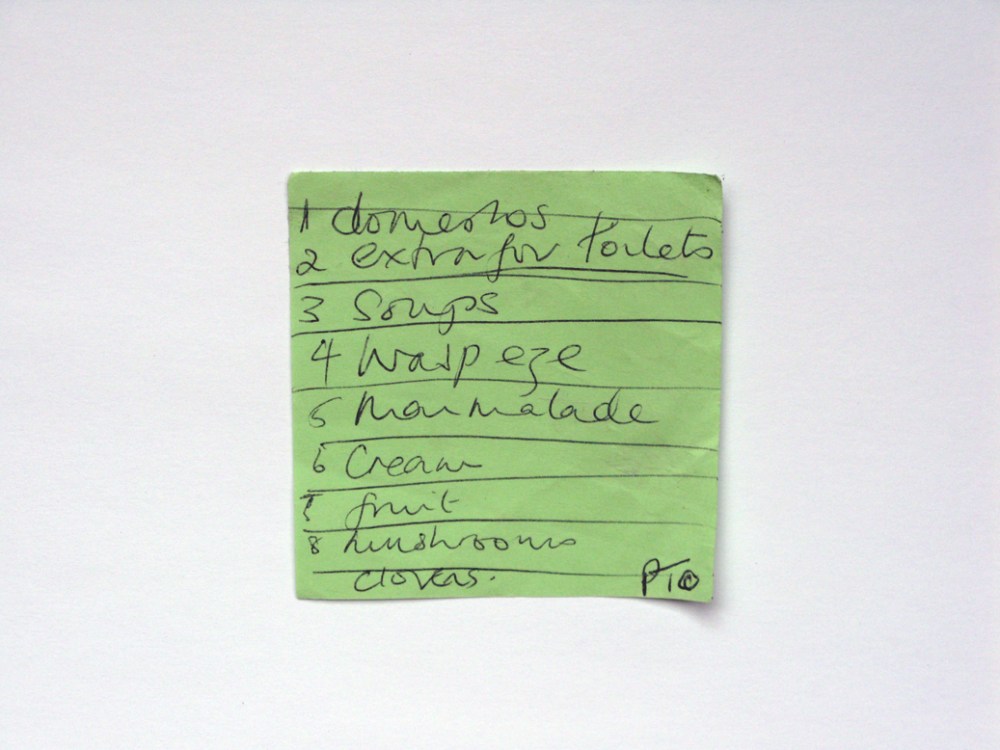 1 domestos
2 extra for Toilets
3 Soups
4 Wasp eze
5 Marmalade
6 Cream
7 fruit
8 Mushrooms
cloves.
PTO